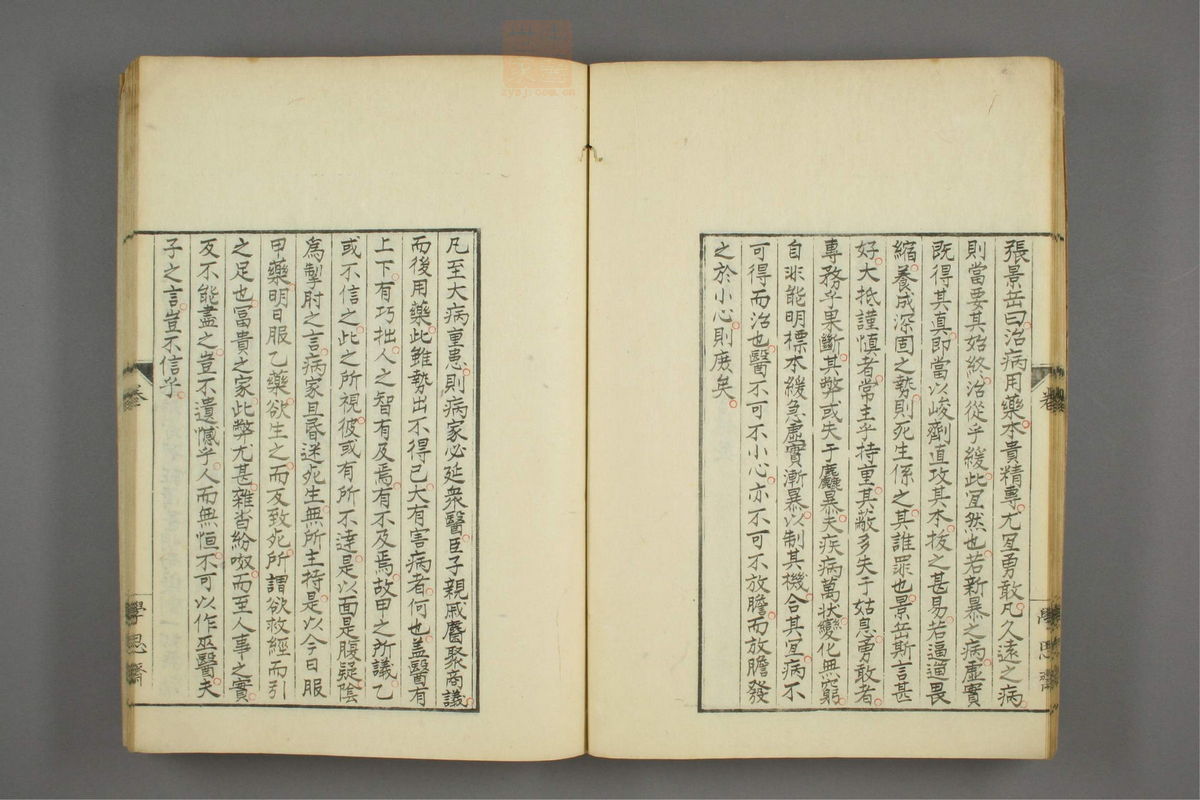 張景岳曰治病用藥本貴精專尤宜勇敢凡久遠之病
則當要其始終治從乎緩此宜然也若新暴之病虛實
既得其真即當以峻劑直攻其本拔之甚易若逼遛畏
縮養成深固之勢則死生係之其誰罪也景岳斯言甚
好大抵謹慎者常主乎持重其敝多失于姑息勇敢者
專務乎果斷其弊或失于麤暴夫疾病萬狀變化無窮
自非能明標本緩急虛實漸暴以制其機合其宜病不
可得而治也醫不可不小心亦不可不放膽而放膽發
之於小心則庶矣
卷
學思齋
凡至大病重患則病家必延衆醫臣子親戚麕聚商議
而後用藥此雖勢出不得已大有害病者何也盖醫有
上下有巧拙人之智有及焉有不及焉故甲之所議乙
或不信之此之所視彼或有所不達是以面是腹疑陰
爲掣肘之言病家且昏迷死生無所主持是以今日服
甲藥明日服乙藥欲生之而反致死所謂欲救經而引
之足也冨貴之家此弊尤甚雜沓紛呶而至人事之實
反不能盡之豈不遺憾乎人而無恒不可以作巫醫夫
子之言豈不信乎
卷二
學思齋
zysj.com.cn